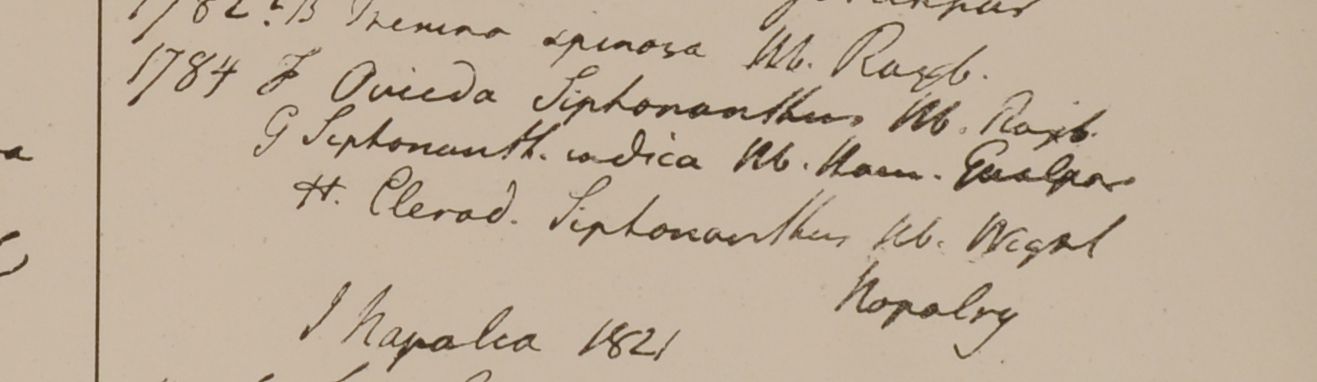 1782.2 B Premna spinosa Hb. Roxb.
1784 F Ovieda Siphonanthus Hb. Roxb.
G Siphonanth. indica Hb. Ham. Gualpara
H. Clerod. Siphonanthus Hb. Wight
I Napalia 1821